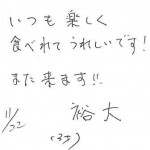 いつも楽しく
食べれてうれしいです!
また来ます!!
11/22 裕大
(3才)